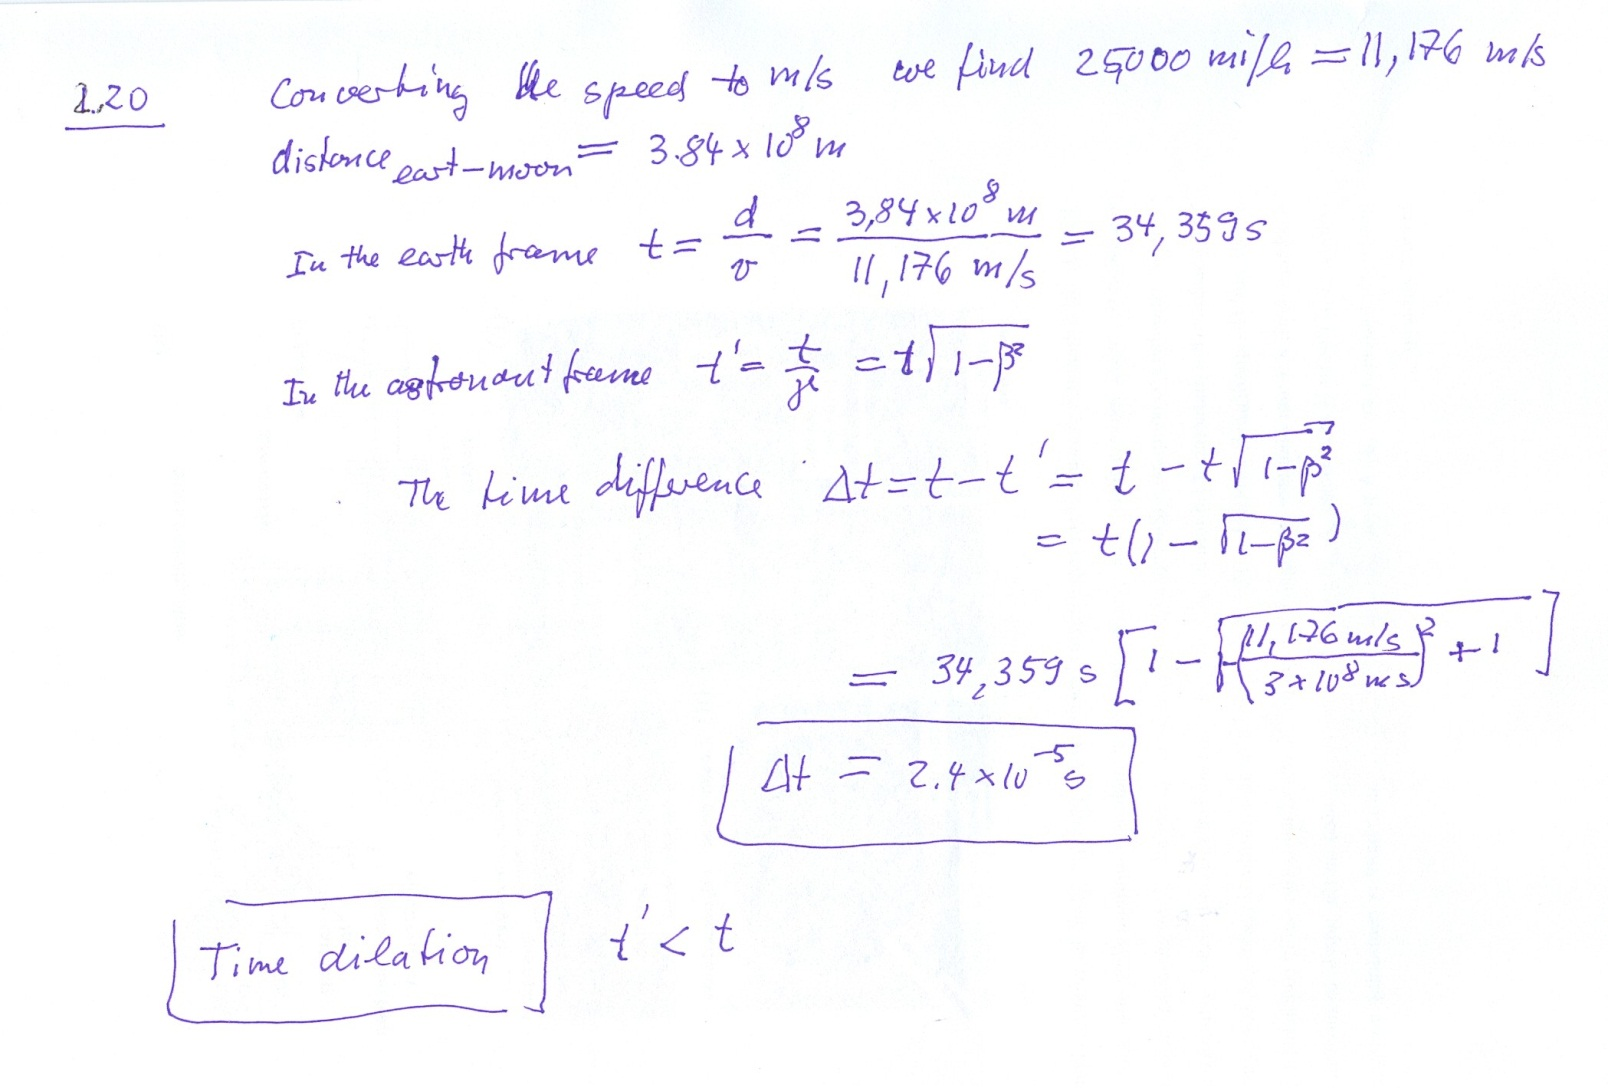 2.20 Converting the speed to m/s we find 25000 mi/h = 11,176 m/s
distance east-moon = 3.84 x 10^8 m
In the earth frame t = d/v = 3,84 x 10^8 m / 11,176 m/s = 34,359 s
In the astronaut frame t' = t/γ = t√(1-β²)
The time difference Δt = t - t' = t - t√(1-β²)
= t(1 - √(1-β²))
= 34,359 s [1 - √(-(11,176 m/s / 3 x 10^8 m s)² + 1)]
Δt = 2.4 x 10^-5 s
Time dilation t' < t